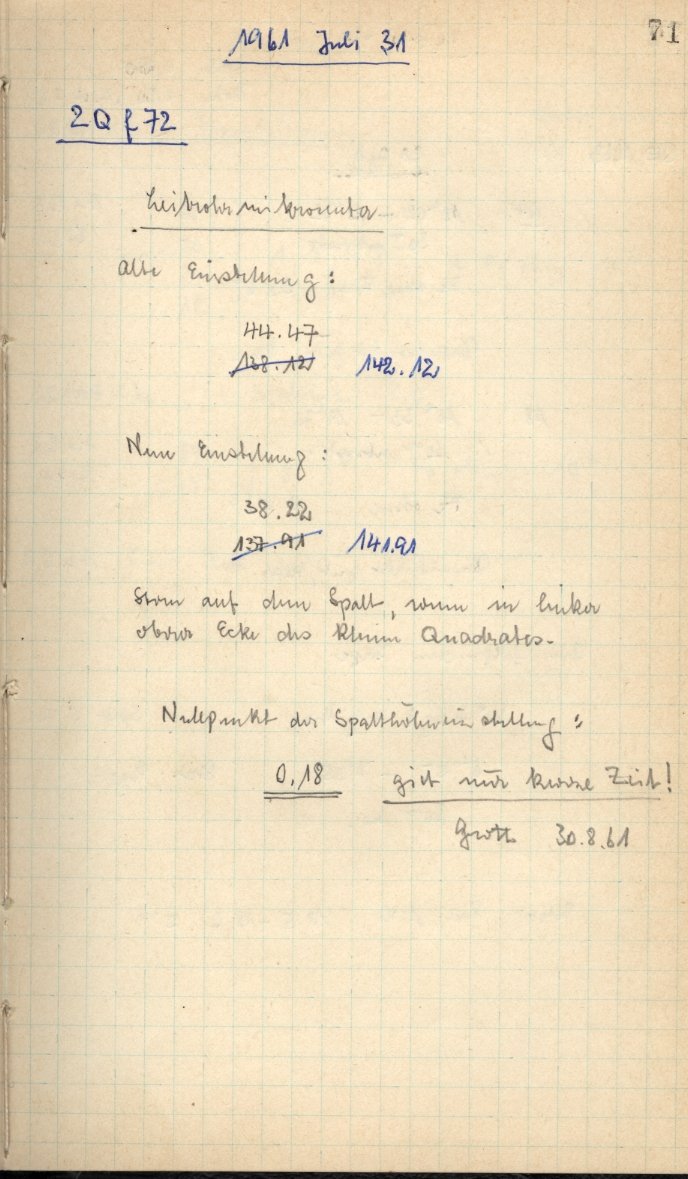 71
1961 Juli 31
2Q f 72
Leitrohrmikrometer
Alte Einstellung:
44.47
138.12 142.12
Neue Einstellung:
38.22
137.91 141.91
Stern auf dem Spalt, wenn in linker
oberer Ecke des kleinen Quadrates.
Nullpunkt der Spalthöheneinstellung:
0,18 gilt nur kurze Zeit!
30.8.61